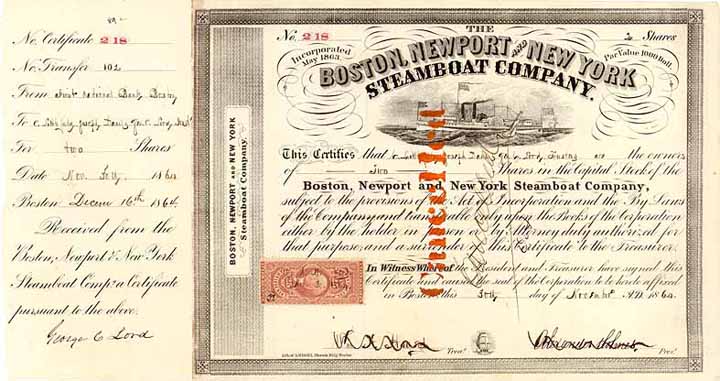 No. Certificate 218
No. Transfer 102
From First National Bank, Boston
To
For two Shares
Date Nov. 1864
Boston Decem 16th 1864
Received from the
Boston, Newport & New York
Steamboat Comp: a Certificate
pursuant to the above.
George C Lord
No. 218
2 Shares
THE
Incorporated
May 1863.
Par Value 1000 Doll.
BOSTON, NEWPORT AND NEW YORK
STEAMBOAT COMPANY.
BOSTON, NEWPORT AND NEW YORK
Steamboat Company.
This Certifies that Joseph are the owners
of Two Shares in the Capital Stock of the
Boston, Newport and New York Steamboat Company,
subject to the provisions of the Act of Incorporation and the By Laws
of the Company and transferable only upon the Books of the Corporation
either by the holder in person or by Attorney duly authorized for
that purpose, and a surrender of this Certificate to the Treasurer.
Cancelled
In Witness Whereof the President and Treasurer have signed this
Certificate and caused the seal of the Corporation to be hereto affixed
in Boston, this day of November A.D. 1864
Treas.
Pres.